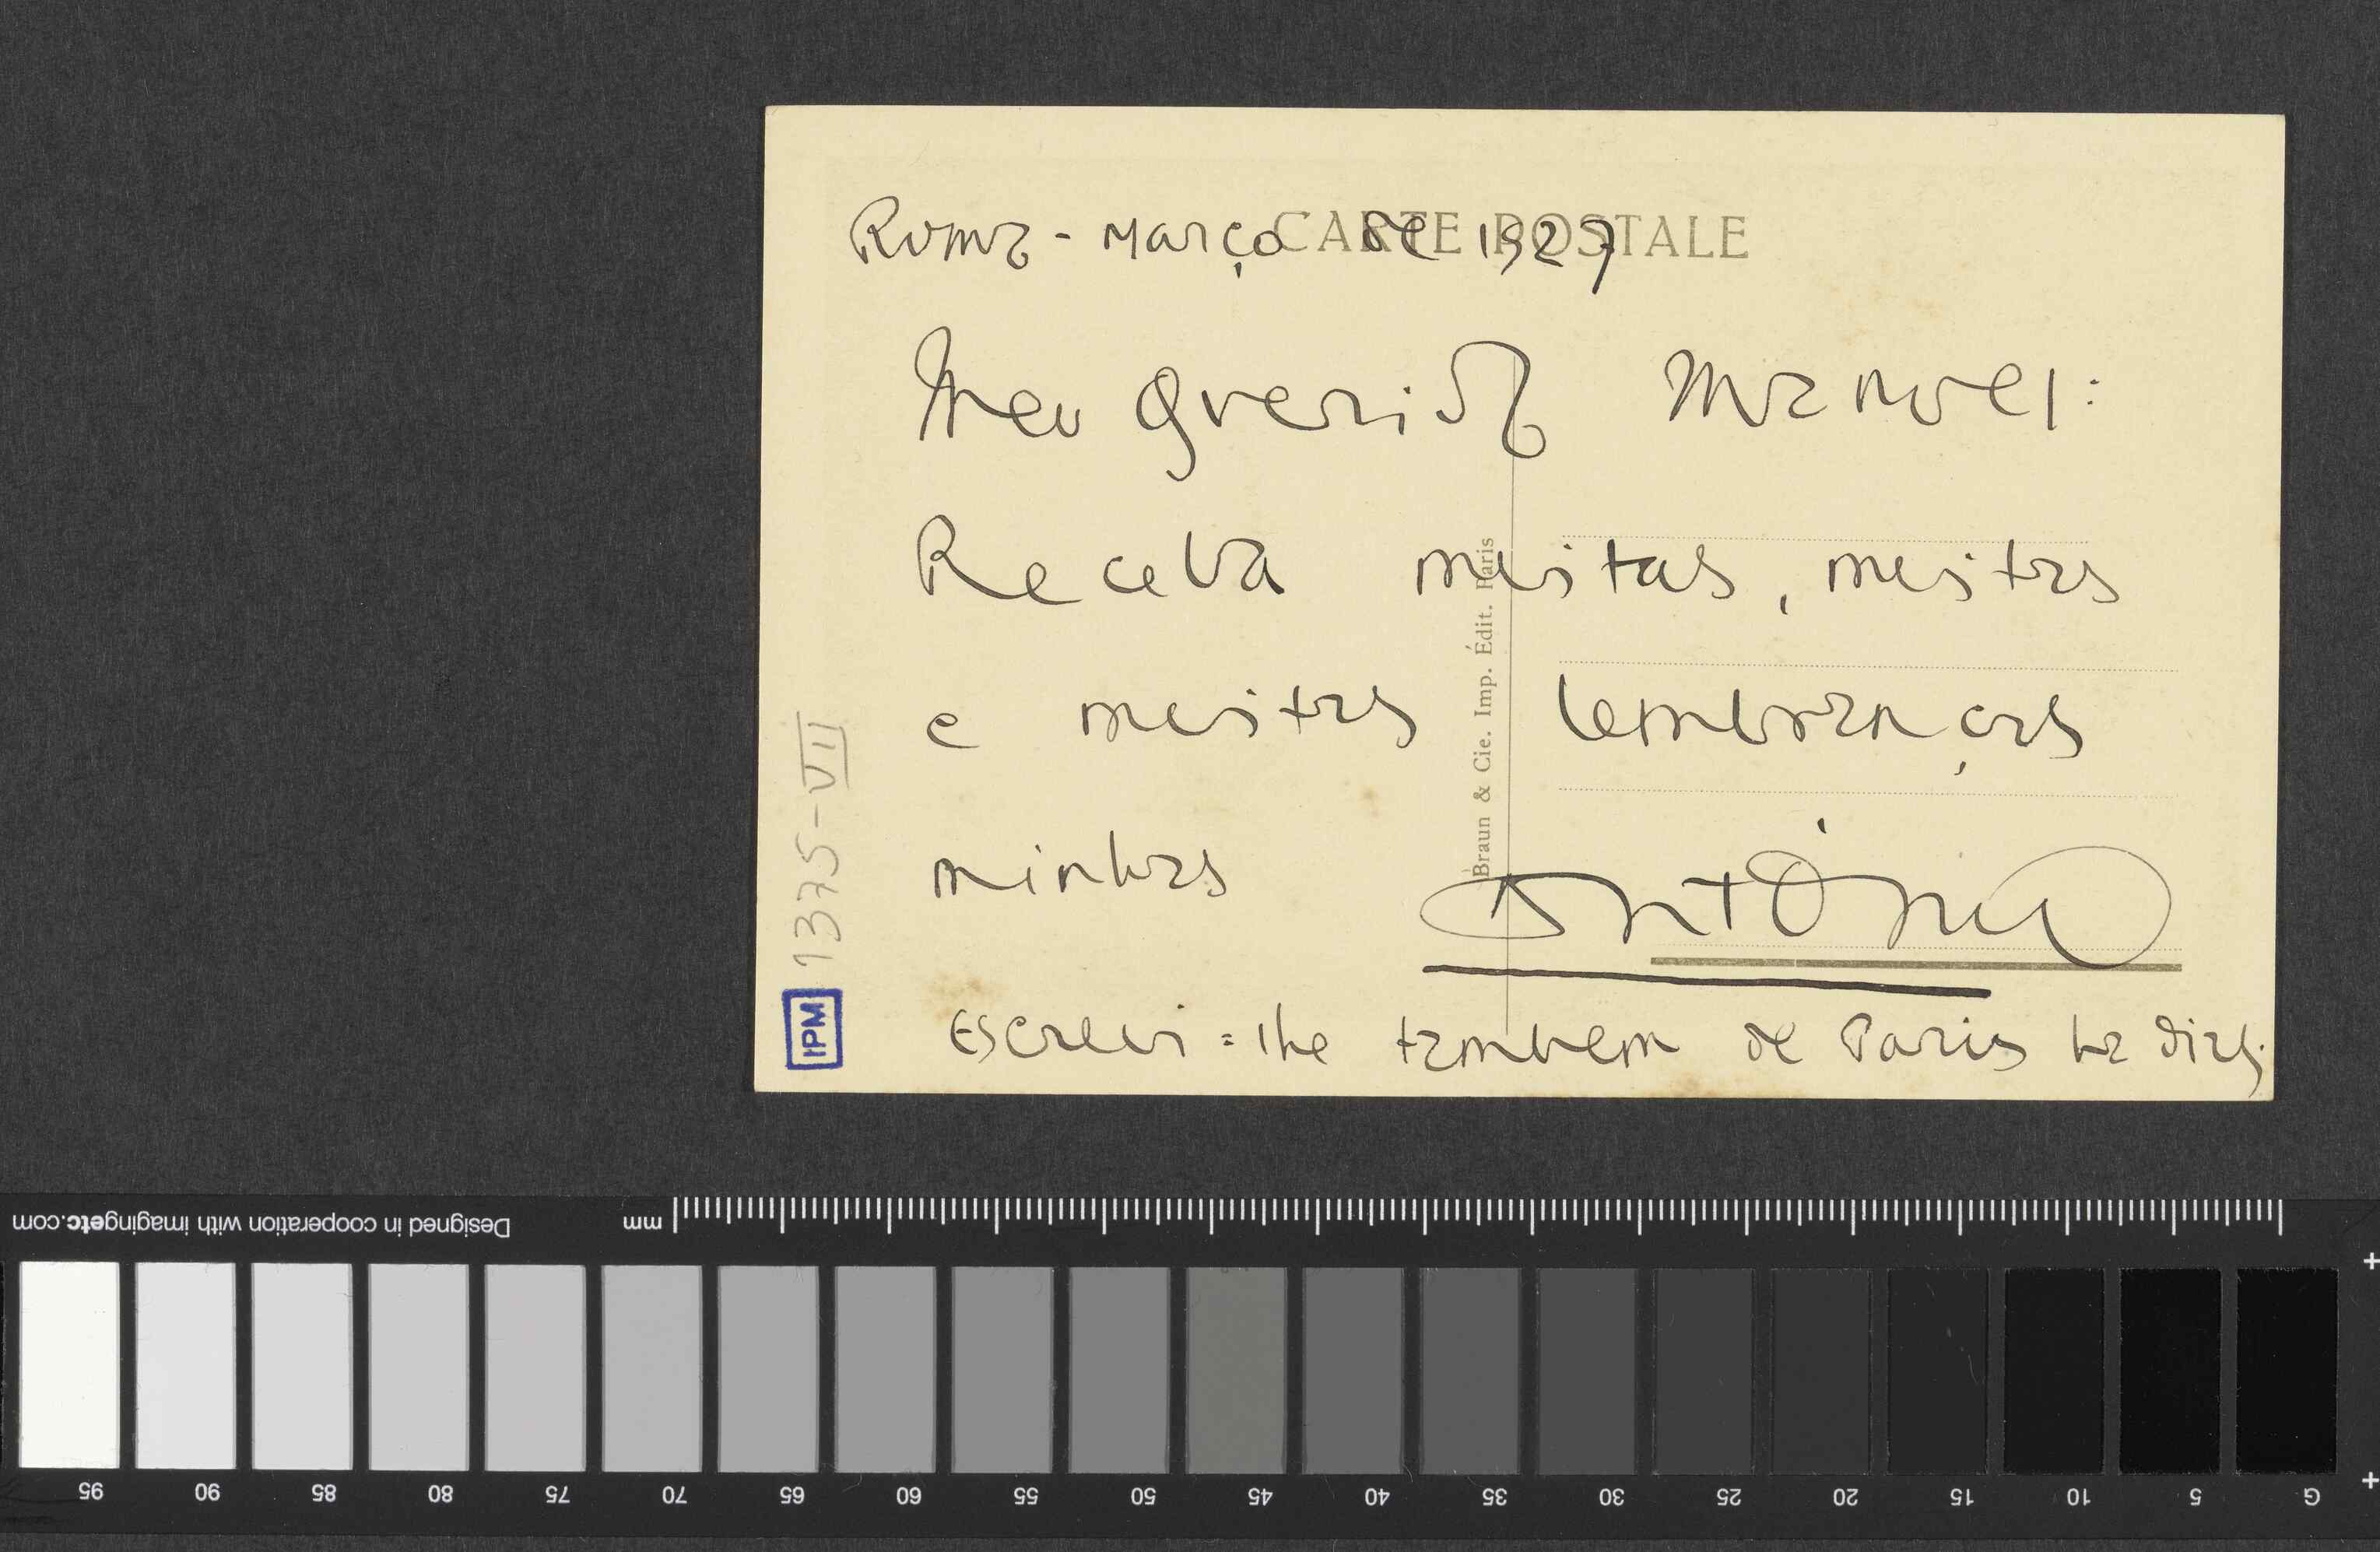 CARTE POSTALE
Roma - Março de 1927
Meu Querido Manuel:
Receba muitas, muitas
e muitas lembranças
minhas António
Escrevi=lhe tambem de Paris ha dias.
Braun & Cie. Imp. Édit. Paris
1375-VII
IPM
Designed in cooperation with imagingetc.com
mm
95 90 85 80 75 70 65 60 55 50 45 40 35 30 25 20 15 10 5 G